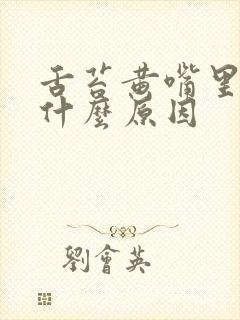 舌苔黄嘴里
什麼原因
劉會英